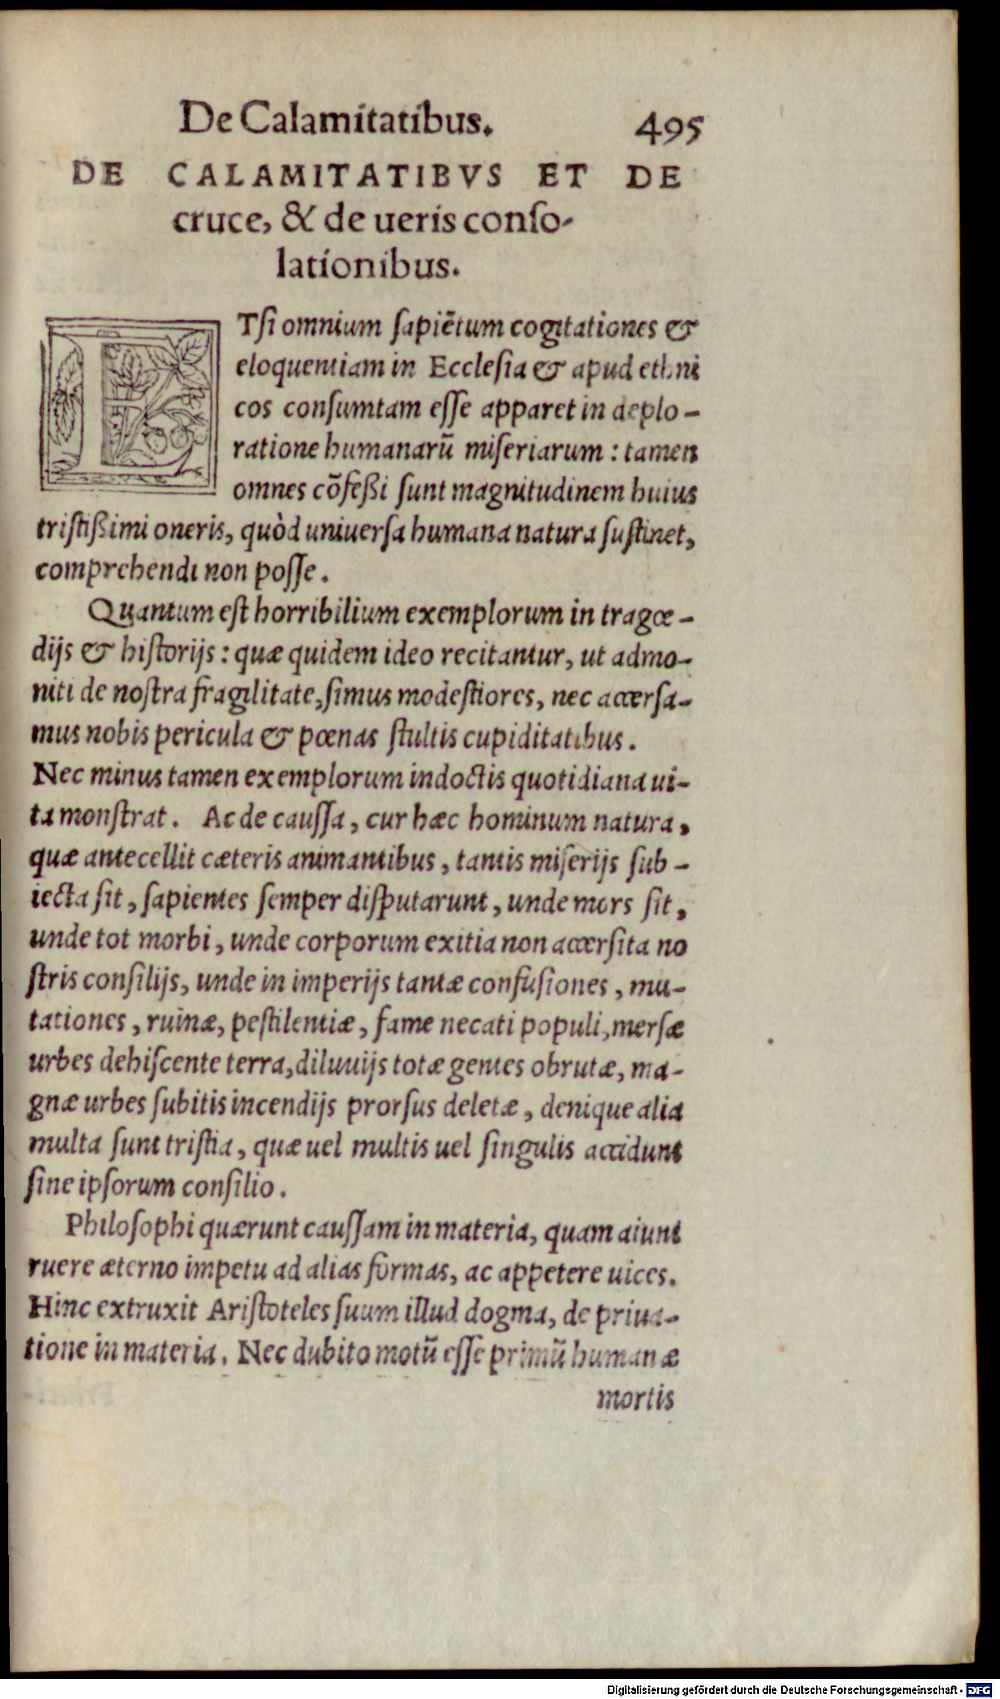 De Calamitatibus. 495
DE CALAMITATIBVS ET DE
cruce, & de ueris conso-
lationibus.
ETsi omnium sapiētum cogitationes &
eloquentiam in Ecclesia & apud ethni
cos consumtam esse apparet in deplo-
ratione humanarū miseriarum: tamen
omnes cōfeßi sunt magnitudinem huius
tristißimi oneris, quòd uniuersa humana natura sustinet,
comprehendi non posse.
Quantum est horribilium exemplorum in tragœ-
dijs & historijs: quæ quidem ideo recitantur, ut admo-
niti de nostra fragilitate, simus modestiores, nec accersa-
mus nobis pericula & pœnas stultis cupiditatibus.
Nec minus tamen exemplorum indoctis quotidiana ui-
ta monstrat. Ac de caussa, cur hæc hominum natura,
quæ antecellit cæteris animantibus, tantis miserijs sub-
iecta sit, sapientes semper disputarunt, unde mors sit,
unde tot morbi, unde corporum exitia non accersita no
stris consilijs, unde in imperijs tantæ confusiones, mu-
tationes, ruinæ, pestilentiæ, fame necati populi, mersæ
urbes dehiscente terra, diluuijs totæ gentes obrutæ, ma-
gnæ urbes subitis incendijs prorsus deletæ, denique alia
multa sunt tristia, quæ uel multis uel singulis accidunt
sine ipsorum consilio.
Philosophi quærunt caussam in materia, quam aiunt
ruere æterno impetu ad alias formas, ac appetere uices.
Hinc extruxit Aristoteles suum illud dogma, de priua-
tione in materia. Nec dubito motū esse primū humanæ
mortis
Digitalisierung gefördert durch die Deutsche Forschungsgemeinschaft - DFG